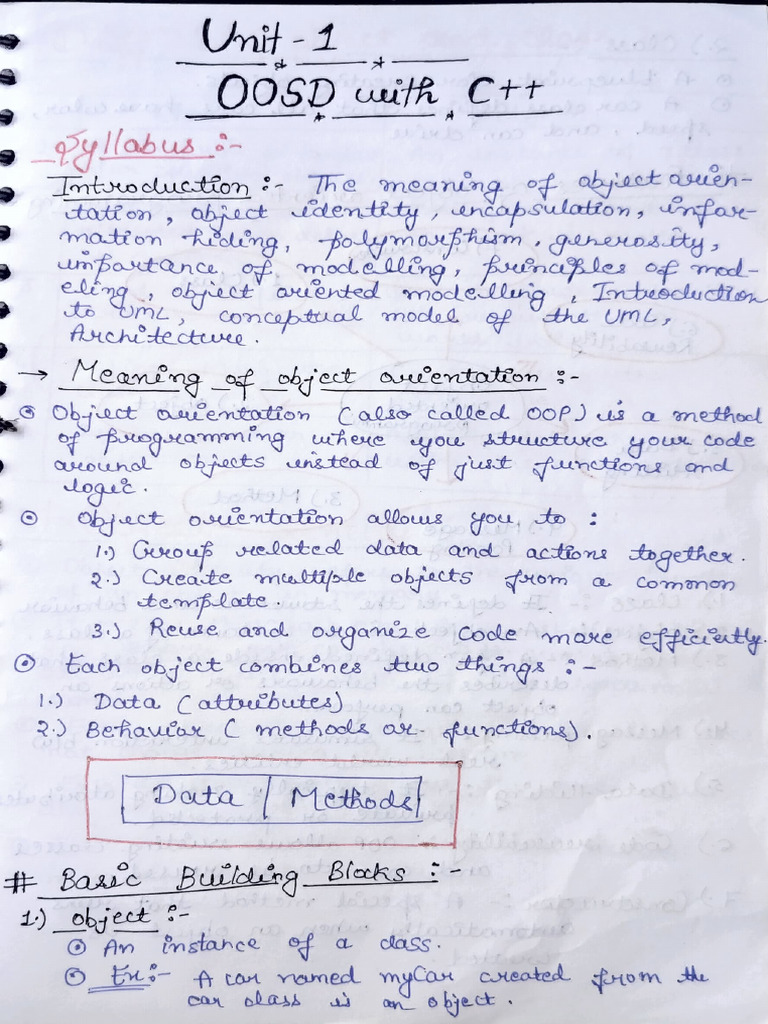 Unit - 1
OOSD with C++
Syllabus :-
Introduction :- The meaning of object orien-
tation, object identity, encapsulation, infor-
mation hiding, polymorphism, generosity,
importance of modelling, principles of mod-
eling, object oriented modelling, Introduction
to UML, conceptual model of the UML,
Architecture.
→ Meaning of object orientation :-
Object orientation (also called OOP) is a method
of programming where you structure your code
around objects instead of just functions and
logic.
Object orientation allows you to :
1.) Group related data and actions together.
2.) Create multiple objects from a common
template.
3.) Reuse and organize code more efficiently.
Each object combines two things :-
1.) Data (attributes)
2.) Behavior ( methods or functions).
Data | Methods
# Basic Building Blocks :-
1.) object :-
An instance of a class.
Ex:- A car named myCar created from the
car class is an object.